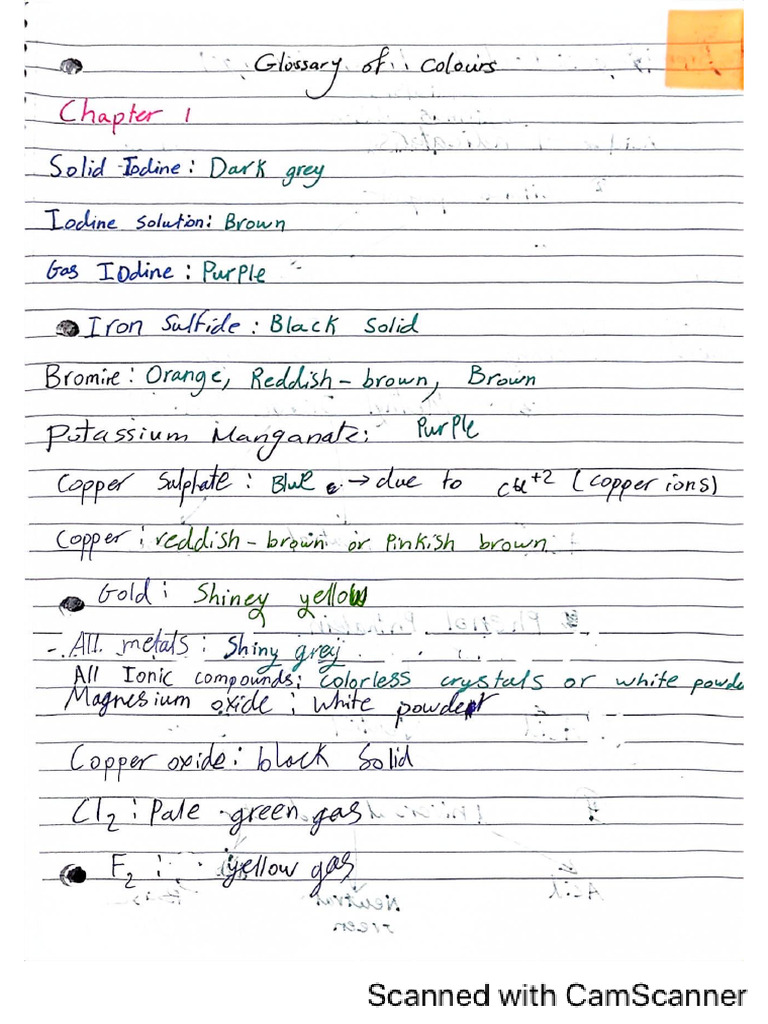 Glossary of colours
Chapter 1
Solid Iodine: Dark grey
Iodine Solution: Brown
Gas IOdine: Purple
Iron Sulfide: Black Solid
Bromine: Orange, Reddish-brown, Brown
Potassium Manganate: Purple
Copper Sulphate: Blue → due to Cu+2 (copper ions)
Copper: reddish-brown or Pinkish brown
Gold: Shiney yellow
- All metals: Shiny grey
All Ionic compounds: colorless crystals or white powde
Magnesium oxide: white powder
Copper oxide: black Solid
Cl2: Pale green gas
F2: yellow gas
Scanned with CamScanner